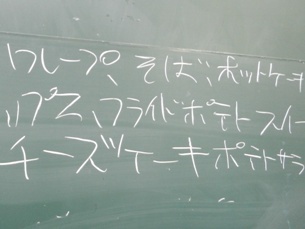 クレープ、そば、ホットケーキ
フライドポテト スイー
チーズケーキ ポテトサラ